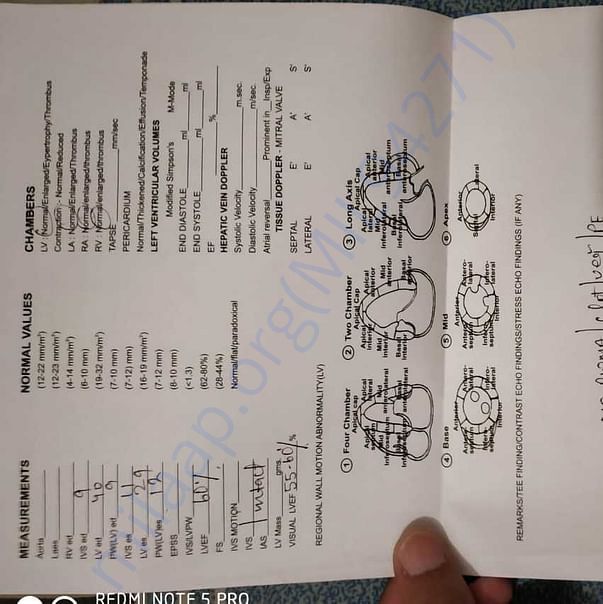 MEASUREMENTS
Aorta
Laes
RV ed
IVS ed 9
LV ed 40
PW(LV) ed 9
IVS es 11
LV es 29
PW(LV)es 12
EPSS
IVS/LVPW
LVEF 60%
FS
IVS MOTION
IVS Intact
IAS
LV Mass gms
VISUAL LVEF 55-60% %
REGIONAL WALL MOTION ABNORMALITY(LV)
NORMAL VALUES
(12-22 mm/m²)
(12-23 mm/m²)
(4-14 mm/m²)
(6-10 mm)
(19-32 mm/m²)
(7-10 mm)
(7-12) mm)
(16-19 mm/m²)
(7-12 mm)
(8-10 mm)
(<1.3)
(62-80%)
(28-44%)
Normal/flat/paradoxical
CHAMBERS
LV Normal/Enlarged/Eypertrophy/Thrombus
Contraction - Normal/Reduced
LA - Normal/Enlarged/Thrombus
RA Normal/enlarged/thrombus
RV - Normal/enlarged/thrombus
TAPSE mm/sec
PERICARDIUM
Normal/Thickened/Calcification/Effusion/Temponade
LEFT VENTRICULAR VOLUMES
Modified Simpson's M-Mode
END DIASTOLE ml ml
END SYSTOLE ml ml
EF %
HEPATIC VEIN DOPPLER
Systolic Velocity m.sec.
Diastolic Velocity m/sec.
Atrial reversal Prominent in Insp/Exp
TISSUE DOPPLER - MITRAL VALVE
SEPTAL E' A' S'
LATERAL E' A' S'
1 Four Chamber
Apical cap
Apical septum
Apical lateral
Mid inferoseptum
Mid anterolateral
Basal inferoseptum
Basal anterolateral
2 Two Chamber
Apical Cap
Apical inferior
Apical anterior
Mid inferior
Mid anterior
Basal inferior
Basal anterior
3 Long Axis
Apical Cap
Apical lateral
Apical anterior
Mid inferolateral
Mid anteroseptum
Basal inferolateral
Basal anteroseptum
4 Base
Anterior
Antero-septum
Antero-lateral
Infero-septum
Infero-lateral
Inferior
5 Mid
Anterior
Antero-septum
Antero-lateral
Infero-septum
Infero-lateral
Inferior
6 Apex
Anterior
Septal
lateral
Inferior
REMARKS/TEE FINDING/CONTRAST ECHO FINDINGS/STRESS ECHO FINDINGS (IF ANY)
REDMI NOTE 5 PRO